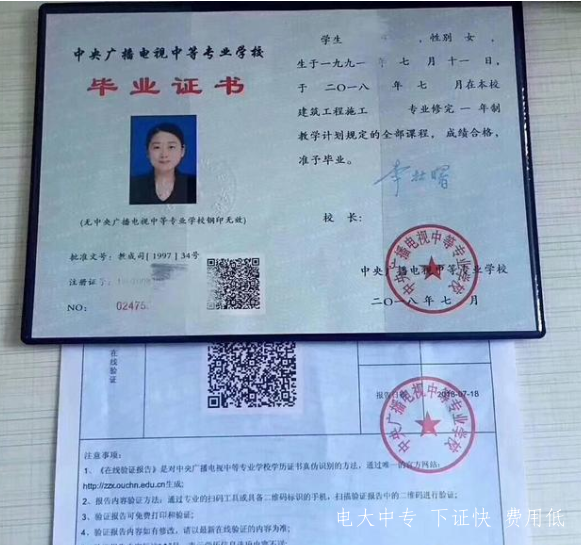 中央广播电视中等专业学校
毕业证书
(无中央广播电视中等专业学校钢印无效)
批准文号：教成司[1997]34号
注册证号：
NO： 02475
学生 ，性别 女，
生于一九九一年 七 月 十一 日，
于 二〇一八 年 七 月在本校
建筑工程施工 专业修完 一 年制
教学计划规定的全部课程，成绩合格，
准予毕业。
校 长：
中央广播电视中等专业学校
二〇一八年 七 月
中央广播电视中等专业学校
在线验证
报告日期
2018-07-18
中央广播电视中等专业学校
注意事项：
1、《在线验证报告》是对中央广播电视中等专业学校学历证书真伪识别的方法，通过唯一的官方网站：
http://zzx.ouchn.edu.cn生成；
2、报告内容验证方法：通过专业的扫码工具或具备二维码标识的手机，扫描验证报告中的二维码进行验证；
3、验证报告可免费打印和验证；
4、验证报告内容如有修改，请以最新在线验证的内容为准；
电大中专 下证快 费用低